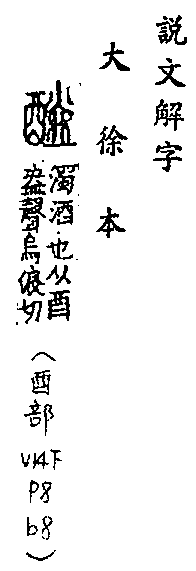 説文解字
大徐本
醠
濁酒也从酉
盎聲烏浪切
（酉部V14下P8b8）